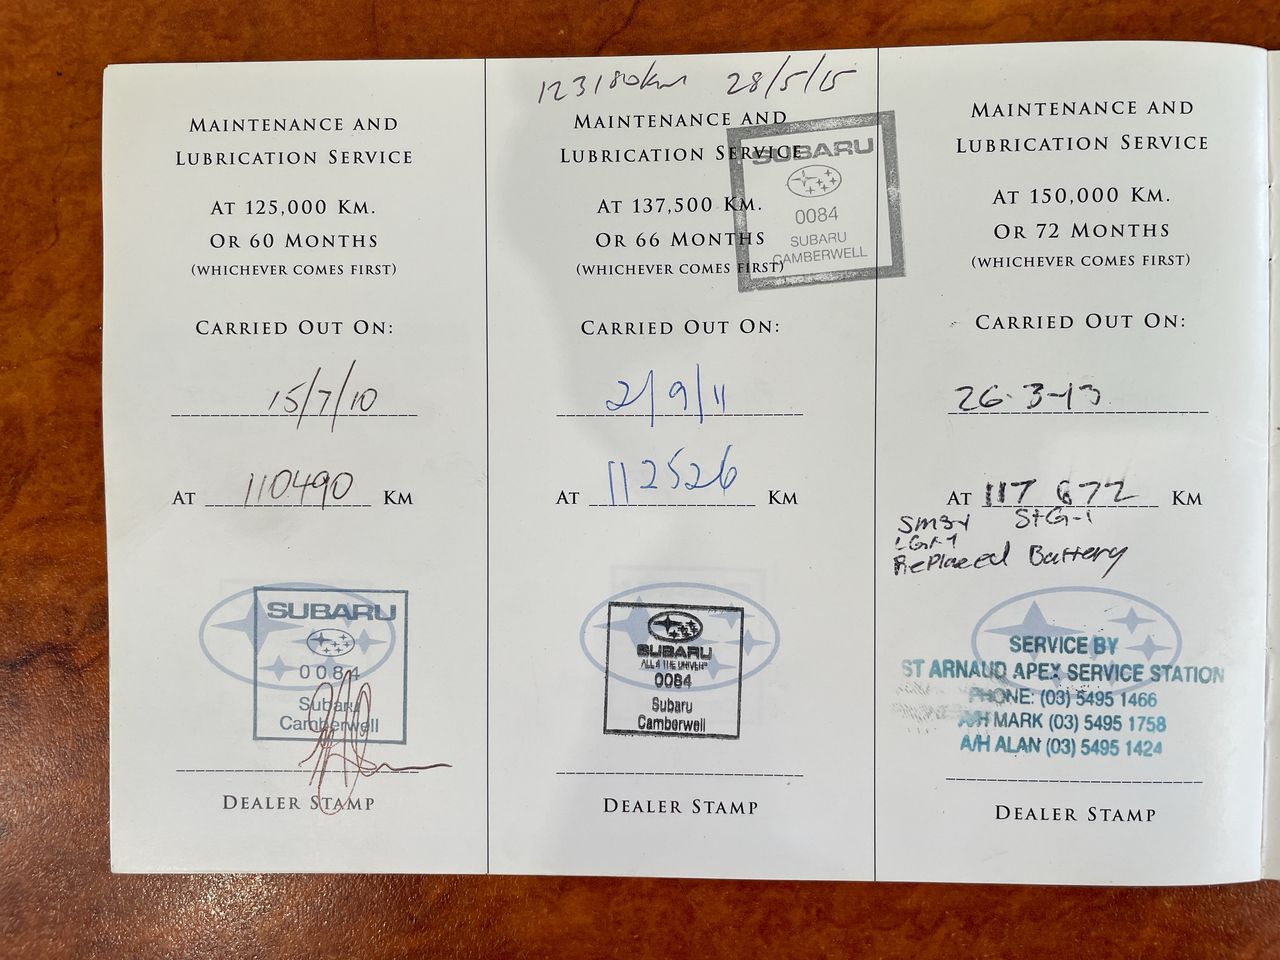 MAINTENANCE AND
LUBRICATION SERVICE
AT 125,000 KM.
OR 60 MONTHS
(WHICHEVER COMES FIRST)
CARRIED OUT ON:
15/7/10
AT 110490 KM
SUBARU
0084
Subaru
Camberwell
DEALER STAMP
123180km 28/5/15
MAINTENANCE AND
LUBRICATION SERVICE
AT 137,500 KM.
OR 66 MONTHS
(WHICHEVER COMES FIRST)
SUBARU
0084
SUBARU
CAMBERWELL
CARRIED OUT ON:
2/9/11
AT 112526 KM
SUBARU
ALL 4 THE DRIVER
0084
Subaru
Camberwell
DEALER STAMP
MAINTENANCE AND
LUBRICATION SERVICE
AT 150,000 KM.
OR 72 MONTHS
(WHICHEVER COMES FIRST)
CARRIED OUT ON:
26-3-13
AT 117 672 KM
StG-1
Replaced Battery
SERVICE BY
ST ARNAUD APEX SERVICE STATION
PHONE: (03) 5495 1466
A/H MARK (03) 5495 1758
A/H ALAN (03) 5495 1424
DEALER STAMP